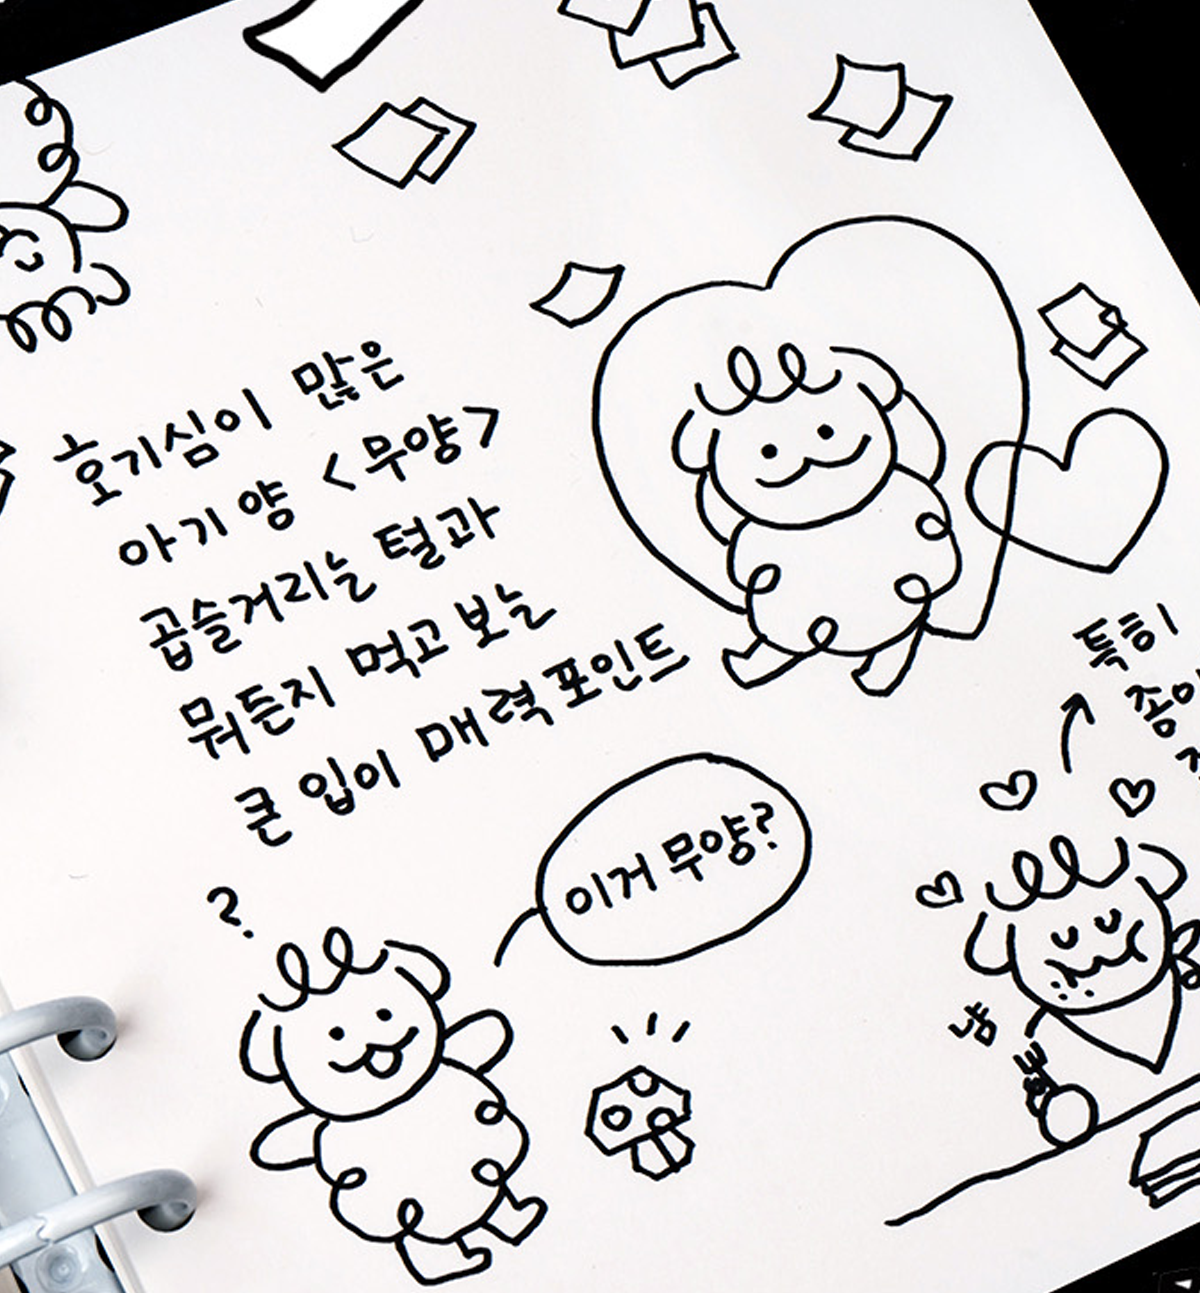 호기심이 많은
아기 양 <무양>
곱슬거리는 털과
뭐든지 먹고 보는
큰 입이 매력포인트
특히
이거 무양?
?
냠